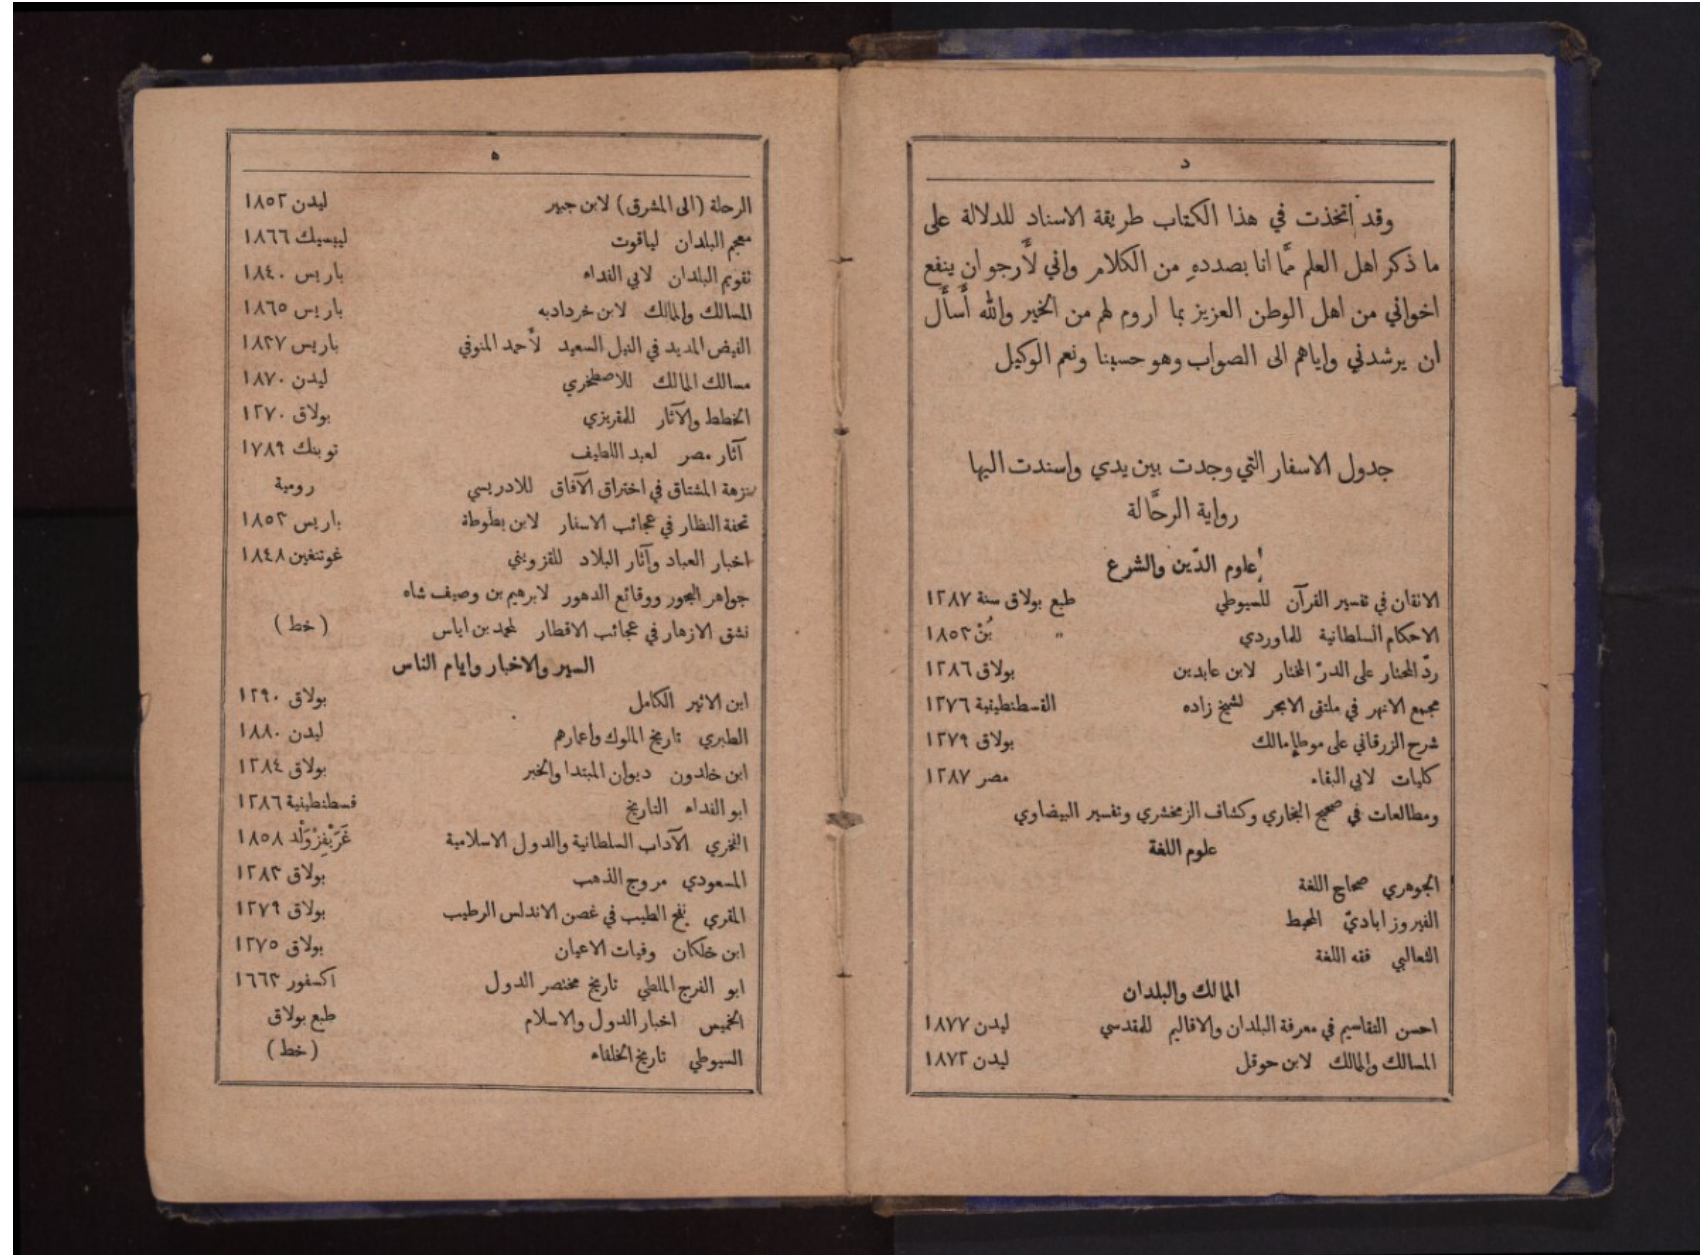 د
وقد اتخذت في هذا الكتاب طريقة الاسناد للدلالة على
ما ذكر اهل العلم ممَّا انا بصددهِ من الكلام واني لَأرجو ان ينفع
اخواني من اهل الوطن العزيز بما اروم لهم من الخير والله أَسأَل
ان يرشدني واياهم الى الصواب وهو حسبنا ونعم الوكيل
جدول الاسفار التي وجدت بين يدي واسندت اليها
رواية الرحَّالة
علوم الدّين والشرع
الاتقان في تفسير القرآن للسيوطي طبع بولاق سنة ١٢٨٧
الاحكام السلطانية للماوردي " بُنْ ١٨٥٣
ردّ المحتار على الدرّ المختار لابن عابدين بولاق ١٢٨٦
مجمع الانهر في ملتقى الابحر لشيخ زاده القسطنطينية ١٢٧٦
شرح الزرقاني على موطإ مالك بولاق ١٢٧٩
كليات لابي البقاء مصر ١٢٨٧
ومطالعات في صحيح البخاري وكشاف الزمخشري وتفسير البيضاوي
علوم اللغة
الجوهري صحاح اللغة
الفيروزاباديّ المحيط
الثعالبي فقه اللغة
الممالك والبلدان
احسن التقاسيم في معرفة البلدان والاقاليم للمقدسي ليدن ١٨٧٧
المسالك والممالك لابن حوقل ليدن ١٨٧٢
ه
الرحلة (الى المشرق) لابن جبير ليدن ١٨٥٢
معجم البلدان لياقوت ليبسيك ١٨٦٦
تقويم البلدان لابي الفداء باريس ١٨٤٠
المسالك والممالك لابن خردادبه باريس ١٨٦٥
الفيض المديد في النيل السعيد لأحمد المنوفي باريس ١٨٣٧
مسالك الممالك للاصطخري ليدن ١٨٧٠
الخطط والآثار للمقريزي بولاق ١٢٧٠
آثار مصر لعبد اللطيف توبنك ١٧٨٩
نزهة المشتاق في اختراق الآفاق للادريسي رومية
تحفة النظار في عجائب الاسفار لابن بطوطة باريس ١٨٥٣
اخبار العباد وآثار البلاد للقزويني غوتنغين ١٨٤٨
جواهر البحور ووقائع الدهور لابرهيم بن وصيف شاه
نشق الازهار في عجائب الاقطار لمحمد بن اياس (خط)
السير والاخبار وايام الناس
ابن الاثير الكامل بولاق ١٢٩٠
الطبري تاريخ الملوك وأعمارهم ليدن ١٨٨٠
ابن خلدون ديوان المبتدا والخبر بولاق ١٢٨٤
ابو الفداء التاريخ قسطنطينية ١٢٨٦
الفخري الآداب السلطانية والدول الاسلامية غَرَيْفِزْوَلْد ١٨٥٨
المسعودي مروج الذهب بولاق ١٢٨٣
المقري نفح الطيب في غصن الاندلس الرطيب بولاق ١٢٧٩
ابن خلكان وفيات الاعيان بولاق ١٢٧٥
ابو الفرج الملطي تاريخ مختصر الدول اكسفور ١٦٦٣
الخميس اخبار الدول والاسلام طبع بولاق
السيوطي تاريخ الخلفاء (خط)